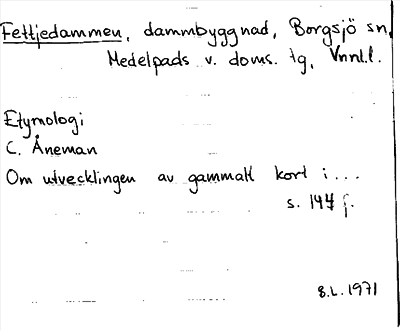 Fettjedammen, dammbyggnad, Borgsjö sn,
Medelpads v. doms. tg, Vnnl.l.
Etymologi
C. Åneman
Om utvecklingen av gammalt kort i...
s. 144 f.
8.L. 1971